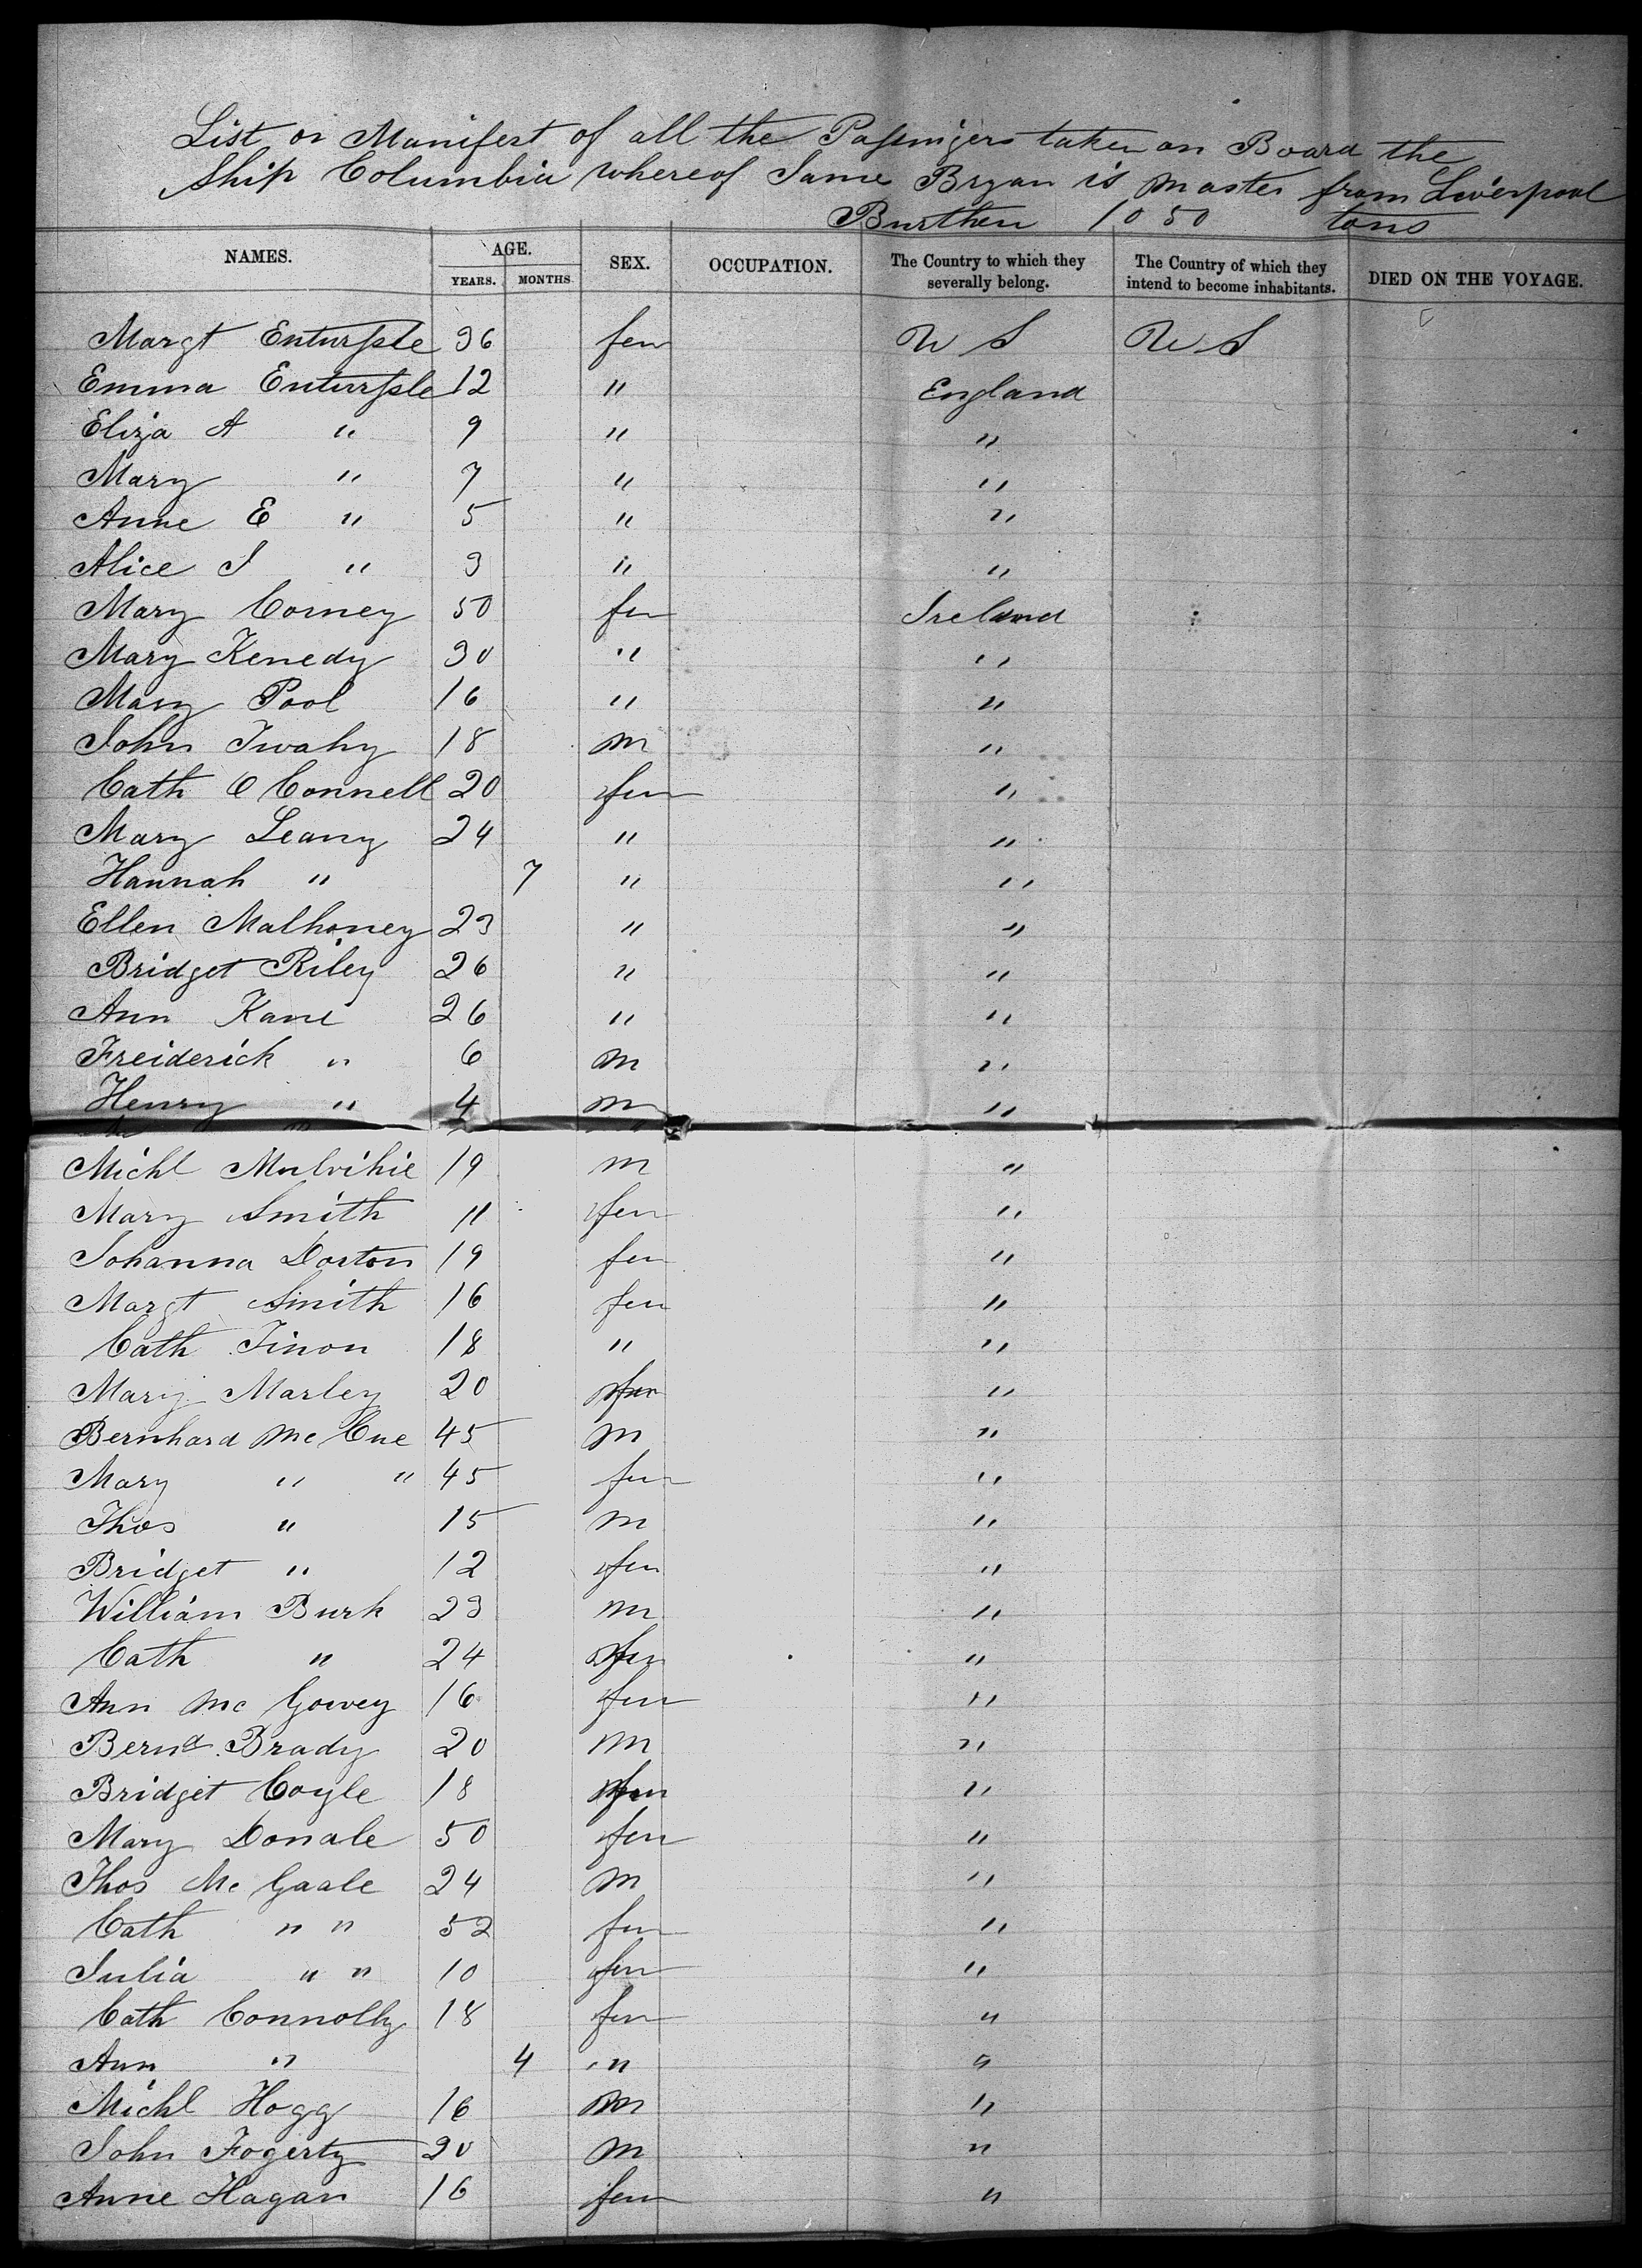 List or Manifest of all the Passingers taken on Board the
Ship Columbia whereof Jame Bryan is master from Liverpool
Burthen 1050 tons
NAMES. AGE. YEARS. MONTHS. SEX. OCCUPATION. The Country to which they severally belong. The Country of which they intend to become inhabitants. DIED ON THE VOYAGE.
Margt 36 fem U S U S
Emma 12 " England
Eliza A " 9 " "
Mary " 7 " "
Anne E " 5 " "
Alice J " 3 " "
Mary Corney 50 fem Ireland
Mary Kenedy 30 " "
Mary Pool 16 " "
John Twahy 18 m "
Cath O Connell 20 fem "
Mary Leany 24 " "
Hannah " 7 " "
Ellen Malhoney 23 " "
Bridget Riley 26 " "
Ann Kane 26 " "
Freiderick " 6 m "
Henry " 4 m "
Michl Mulvihie 19 m "
Mary Smith 11 fem "
Johanna Dorton 19 fem "
Margt Smith 16 fem "
Cath Tinon 18 " "
Mary Marley 20 fem "
Bernhard Mc Cue 45 m "
Mary " " 45 fem "
Thos " 15 m "
Bridget " 12 fem "
William Burk 23 m "
Cath " 24 fem "
Ann Mc Gowey 16 fem "
Bernd Brady 20 m "
Bridget Coyle 18 fem "
Mary Donale 50 fem "
Thos Mc Gaale 24 m "
Cath " " 52 fem "
Julia " " 10 fem "
Cath Connolly 18 fem "
Ann " 4 " "
Michl Hogg 16 m "
John Fogerty 20 m "
Anne Hagan 16 fem "